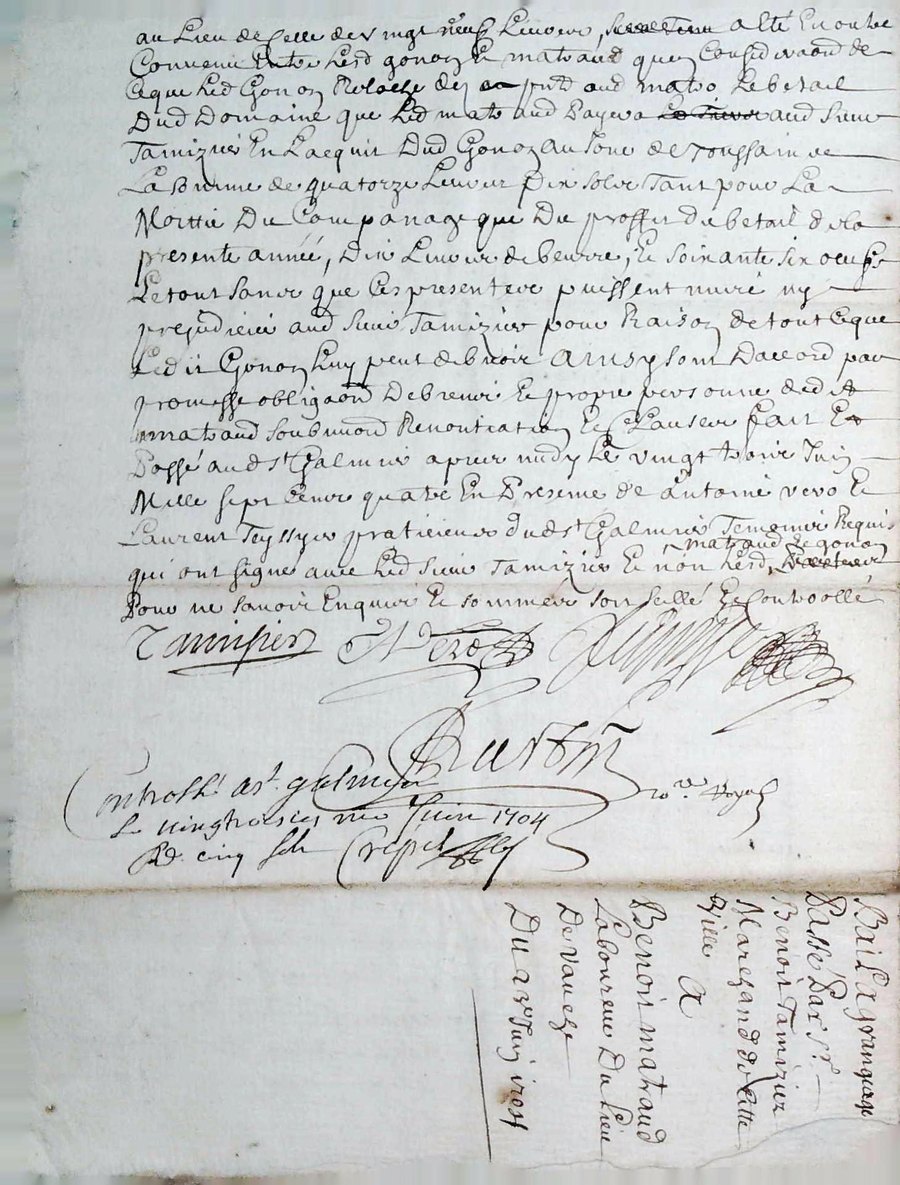 au Lieu de Celle de vingt neuf Livres, a Esté En outre
Convenu Entre Led gonon Et matraud quen Considera͠on de
Ceque Led Gonon Relache des pnt aud matrod Lebetail
Dud Domaine que Led matraud Payera aud Sieur
Tamizier En Lacquit Dud Gonon au Jour de Toussain
La Somme de quatorze Livres Dix solz Tant pour La
Moittié Du Companage que Du proffit du betail dela
presente année, Dix Livres de beurre, Et soixante six oeufs
Letout sans que Ces presentes puissent nuire ny
prejudicier aud Sieur Tamizier pour Raison detout Ceque
Ledit Gonon Luy peut debvoir Ainsy sont Daccord par
promesse obliga͠on Debiens Et propre personne dud
matraud soubmi͠on Renontiation Et Clauses fait Et
Passé aud St Galmier apres midy Le vingt trois Juin
Mille sept Cens quatre En Presence de antoine vero Et
Laurent Teyssyer praticiens dud St Galmier Temoins Requis
matraud Et gonon
qui ont signé avec Led Sieur Tamizier Et non Lesd
Pour ne savoir Enquis Et sommés soit scellé Et Controollé
Tamisier
Controllé a St. galmier
Royal
Le vingtroisies me Juin 1704
Rd. cinq sols
Bail a grangeage
Passé Par Sr.
Benoit Tamizier
Marchand de Cette
Ville A
Benoit matraud
Laboureur Du Lieu
De Vauche
Du 23e Juin 1704